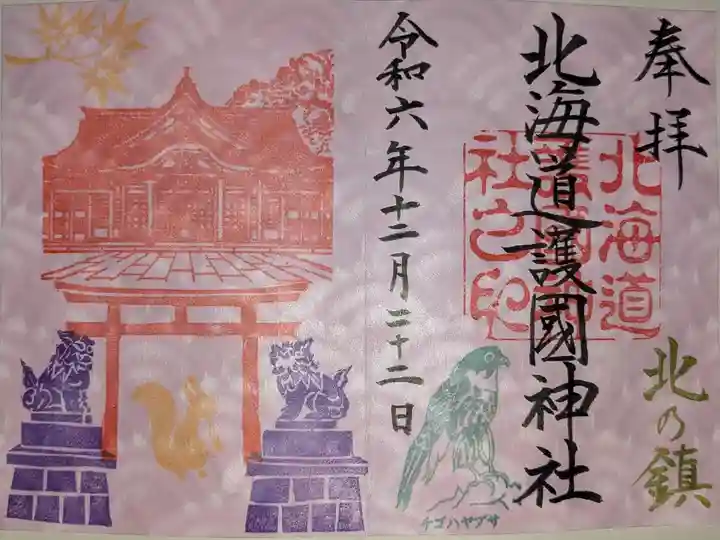 奉拝
北の鎮
北海道護國神社
北海道
護國神
社之印
令和六年十二月二十二日
チゴハヤブサ